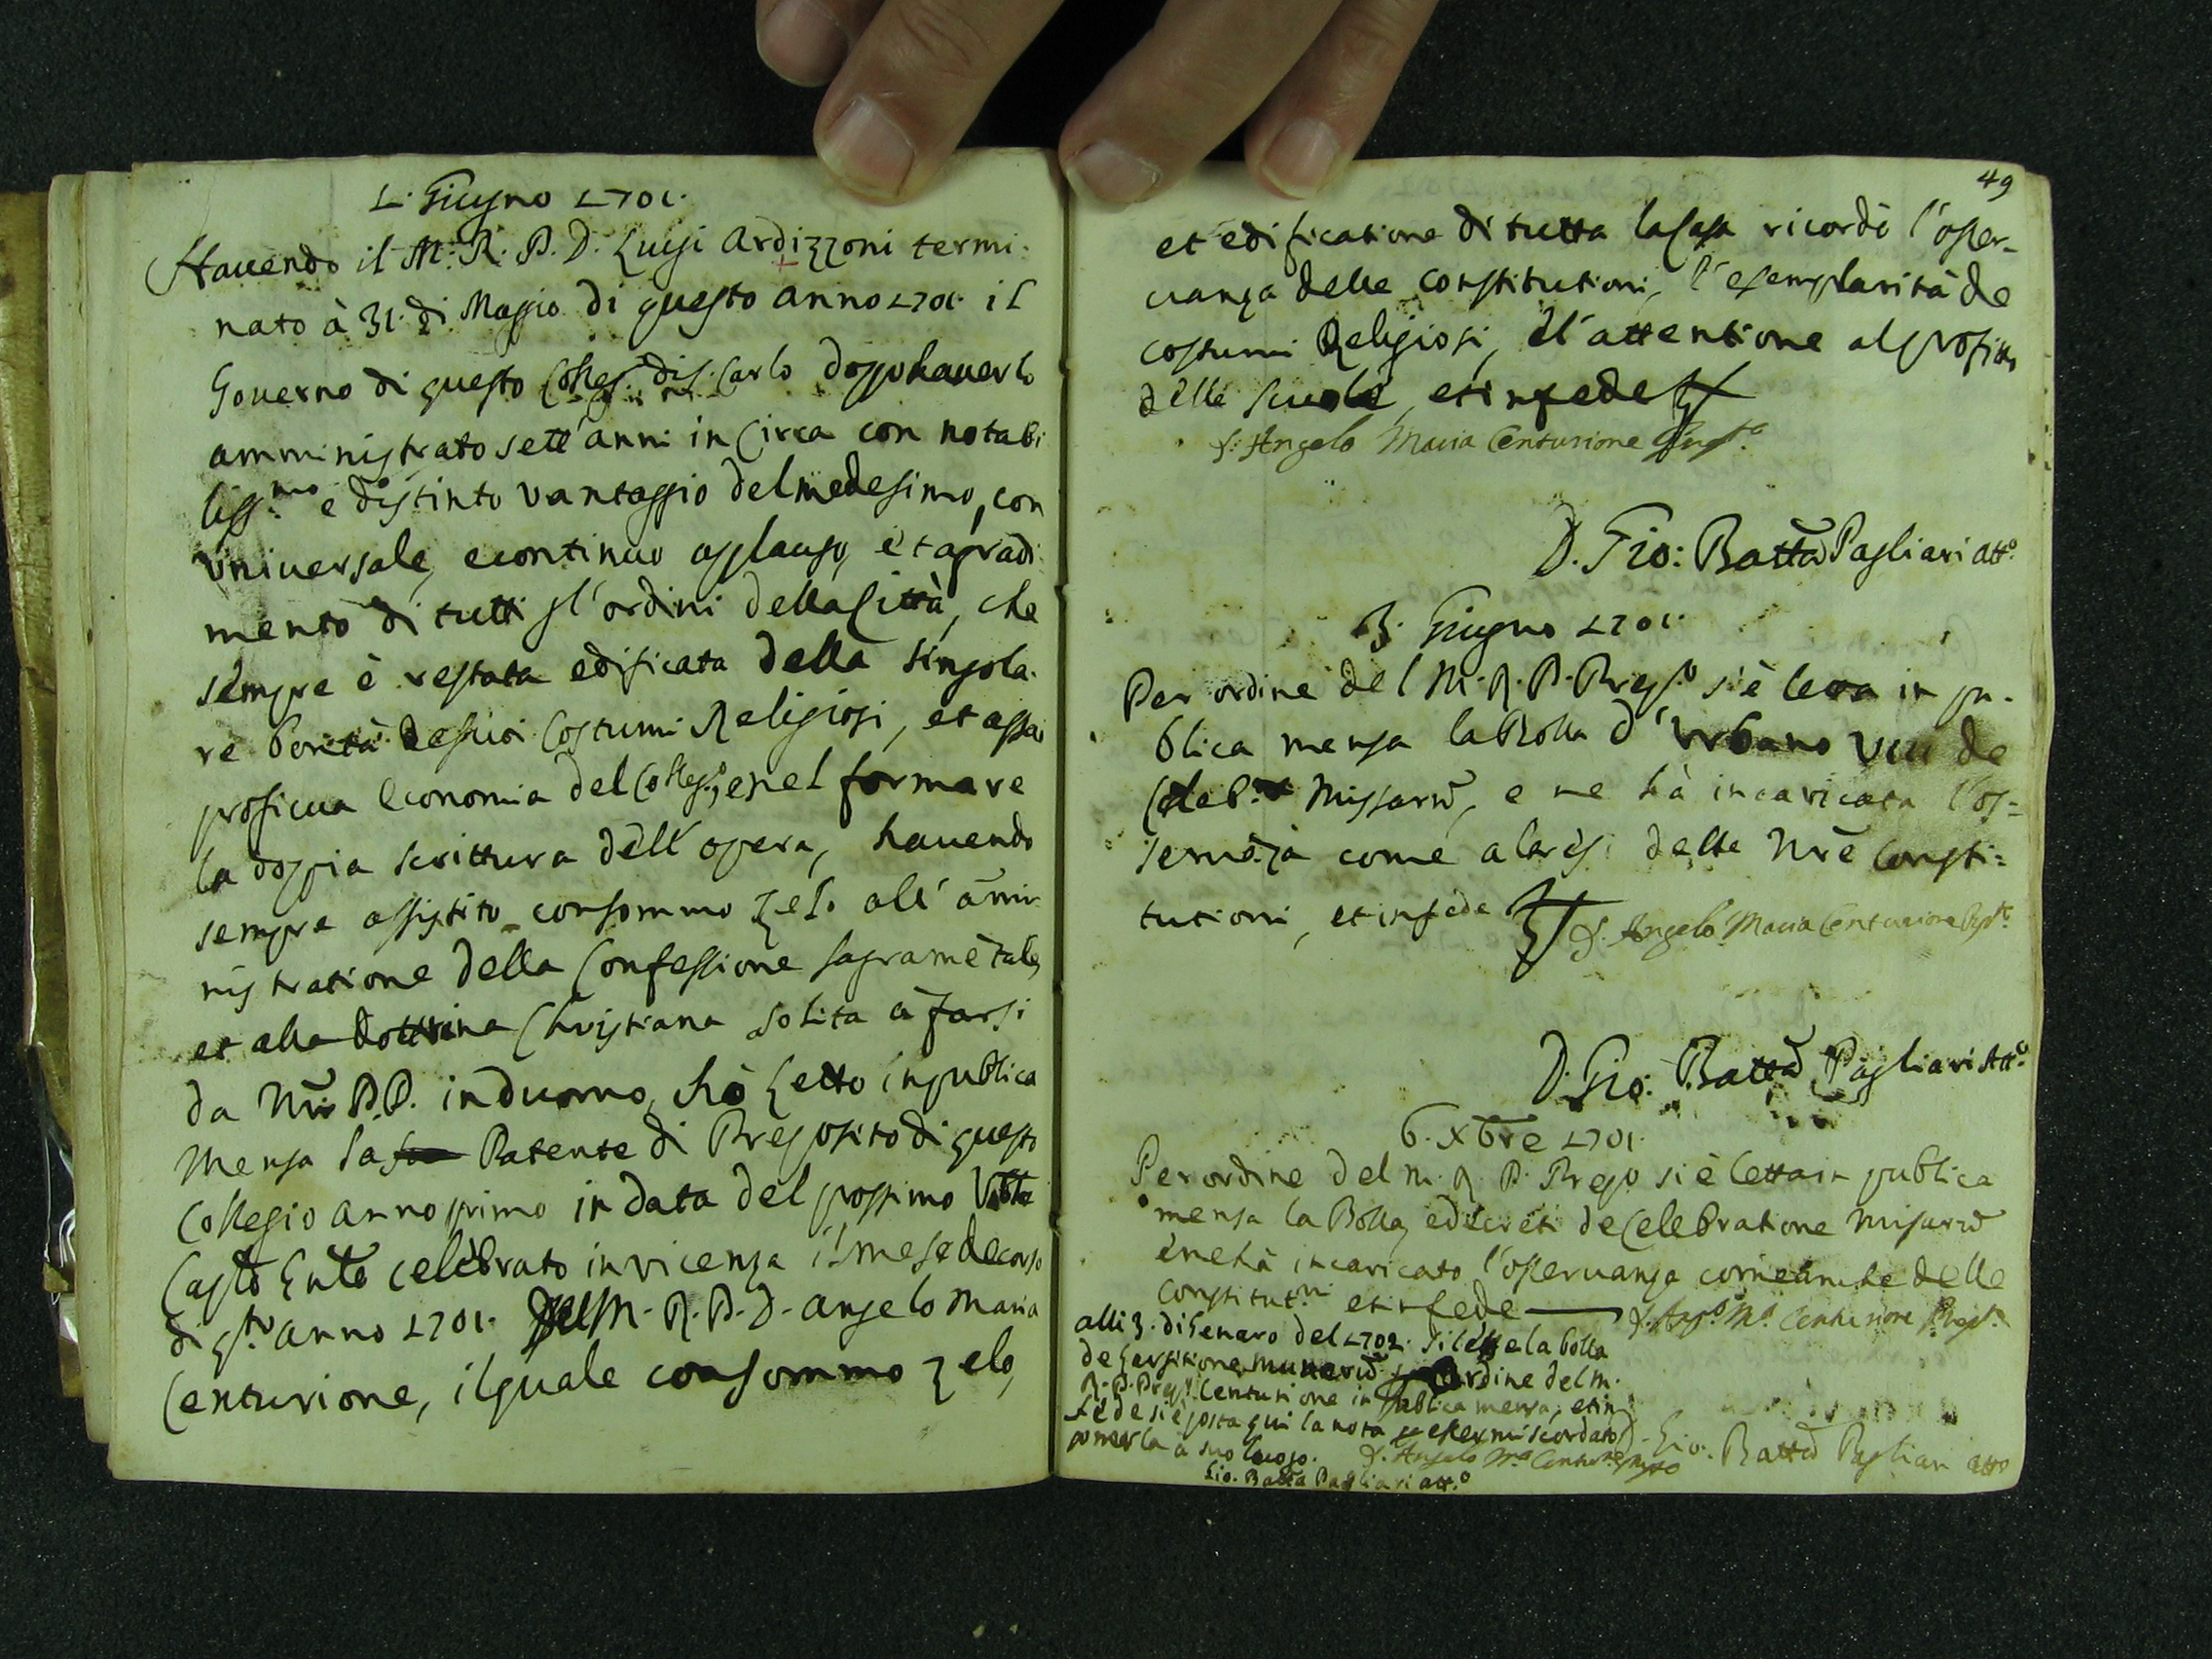 1. Giugno 1701.
Havendo il M. R. P. D. Luigi Ardizzoni termi-
nato à 31. di Maggio di questo anno 1701. il
Governo di questo Colleg.o di S. Carlo doppo haverlo
amministrato sett'anni in Circa con notabi
liss.mo e distinto vantaggio del medesimo, con
Vniversale, e continuo applauso, et agradi
mento di tutti gl'ordini della Città, che
sempre è restata edificata della singola-
re bontà de suoi Costumi Religiosi, et assai
proficua Economia del Colleg.o, e nel formare
la doppia scrittura dell'opera, havendo
sempre assistito con sommo Zelo all'am̄i-
nistratione della Confessione sagramētale,
et alla Dottrina Christiana solita à farsi
da Nr̄i P.P. in duomo, hà Letto in publica
Mensa la Patente di Preposito di questo
Collegio anno primo in data del prossimo Vble
Caplo Gnle celebrato in vicenza il mese decorso
di q.sto anno 1701. Il M. R. P. D. Angelo Maria
Centurione, il quale con sommo zelo,
49
et edificatione di tutta la Casa ricordò l'osser-
vanza delle constitutioni, l'esemplarità de
costumi Religiosi, et l'attentione al profitto
delle scuole, et in fede
D. Angelo Maria Centurione Prep.to
D. Gio: Batta Pagliari Att.o
3. Giugno 1701.
Per ordine del M. R. P. Prep.to s'è letta in pu-
blica mensa la Bolla d'Vrbano VIII de
Celeb.ne Missarū, e ne hà incaricata l'os=
servāza come altresi delle Nrē Consti=
tutioni, et in fede D. Angelo Maria Centurione Prep.to
D. Gio: Batta Pagliari Att.o
6. Xbre 1701.
Per ordine del M. R. P. Prep.o si è letta in publica
mensa la Bolla, e decreti de Celebratione Missarū
e ne hà incaricato l'osservanza come anche delle
Constitut.ni et in fede D. Ang.o M.a Centurione Prep.to
alli 3. di Genaro del 1702. si lesse la bolla
de Largitione munerū ordine del M.
R. P. Prep.to Centurione in Publica mensa, et in
fede si è posta qui la nota p essermi scordato
ponerla à suo luogo. D. Angelo M.a Centurione Prep.to
D. Gio: Batta Pagliari Atto
Gio. Batta Pagliari att.o